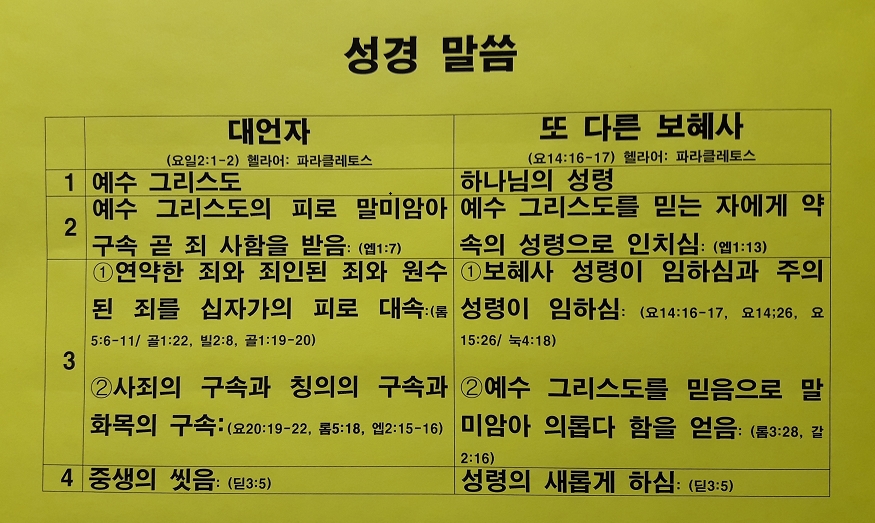 성경 말씀
대언자
(요일2:1-2) 헬라어: 파라클레토스
또 다른 보혜사
(요14:16-17) 헬라어: 파라클레토스
1
예수 그리스도
하나님의 성령
2
예수 그리스도의 피로 말미암아
구속 곧 죄 사함을 받음: (엡1:7)
예수 그리스도를 믿는 자에게 약
속의 성령으로 인치심: (엡1:13)
3
①연약한 죄와 죄인된 죄와 원수
된 죄를 십자가의 피로 대속:(롬
5:6-11/ 골1:22, 빌2:8, 골1:19-20)
②사죄의 구속과 칭의의 구속과
화목의 구속:(요20:19-22, 롬5:18, 엡2:15-16)
①보혜사 성령이 임하심과 주의
성령이 임하심: (요14:16-17, 요14;26, 요
15:26/ 눅4:18)
②예수 그리스도를 믿음으로 말
미암아 의롭다 함을 얻음: (롬3:28, 갈
2:16)
4
중생의 씻음: (딛3:5)
성령의 새롭게 하심: (딛3:5)